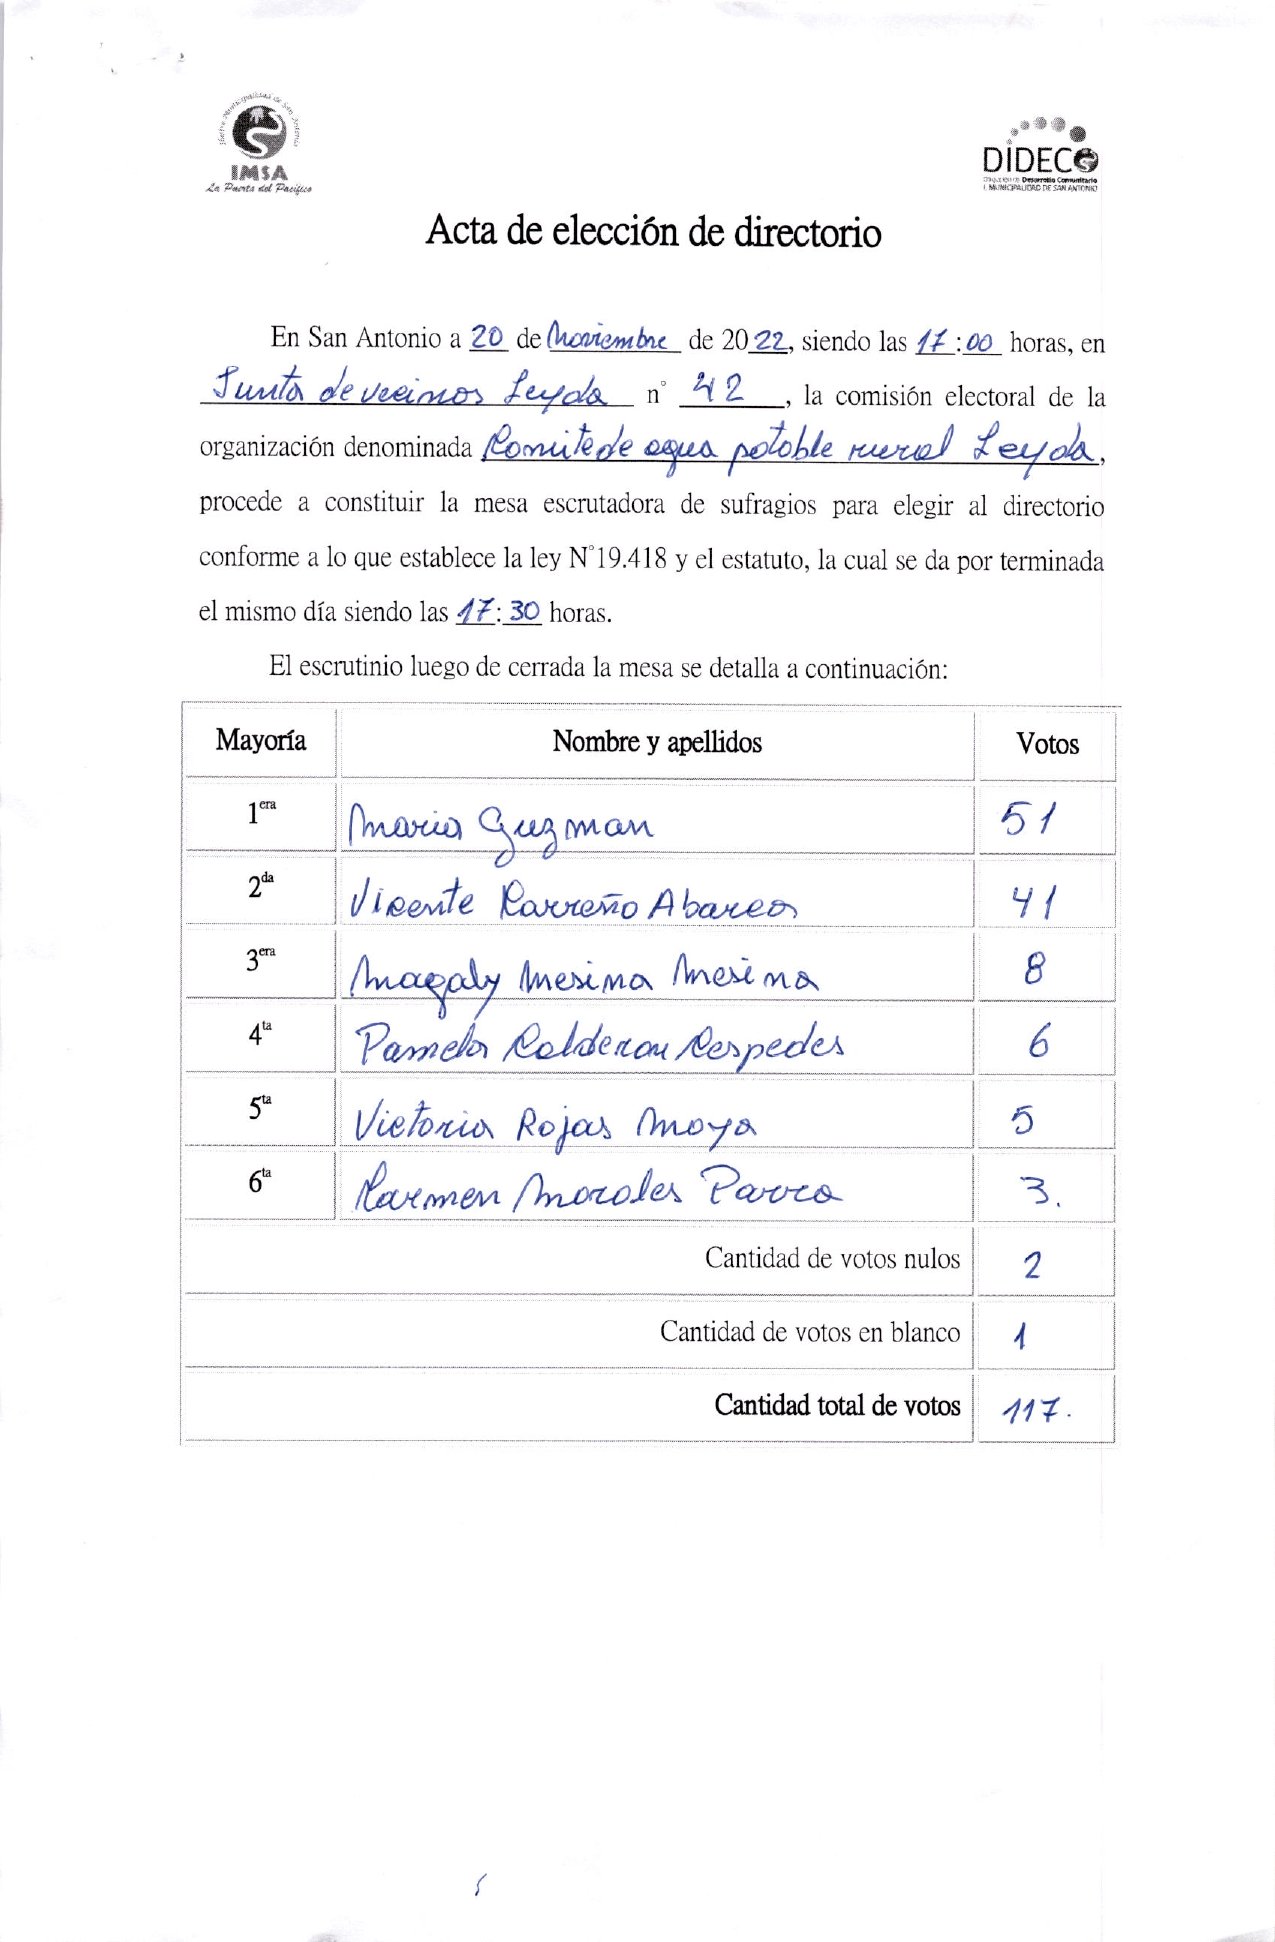 Ilustre Municipalidad de San Antonio
IMSA
La Puerta del Pacífico
DIDECO
Desarrollo Comunitario
I. MUNICIPALIDAD DE SAN ANTONIO
Acta de elección de directorio
En San Antonio a 20 de Noviembre de 2022, siendo las 17:00 horas, en
Junta de vecinos Leyda n° 42, la comisión electoral de la
organización denominada Comite de agua potable rural Leyda,
procede a constituir la mesa escrutadora de sufragios para elegir al directorio
conforme a lo que establece la ley N°19.418 y el estatuto, la cual se da por terminada
el mismo día siendo las 17:30 horas.
El escrutinio luego de cerrada la mesa se detalla a continuación:
Mayoría Nombre y apellidos Votos
1era Maria Guzman 51
2da Vicente Carreño Abarca 41
3era Magaly Mesina Mesina 8
4ta Pamela Calderon Cespedes 6
5ta Victoria Rojas Moya 5
6ta Carmen Morales Parra 3.
Cantidad de votos nulos 2
Cantidad de votos en blanco 1
Cantidad total de votos 117.